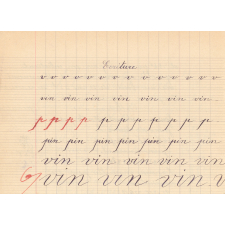 Ecriture
v v v v v v v v v v v v
vin vin vin vin vin vin vin
p p p p p p p p p p p
pin pin pin pin pin pin pin
vin vin vin vin vin vin
vin vin vin v